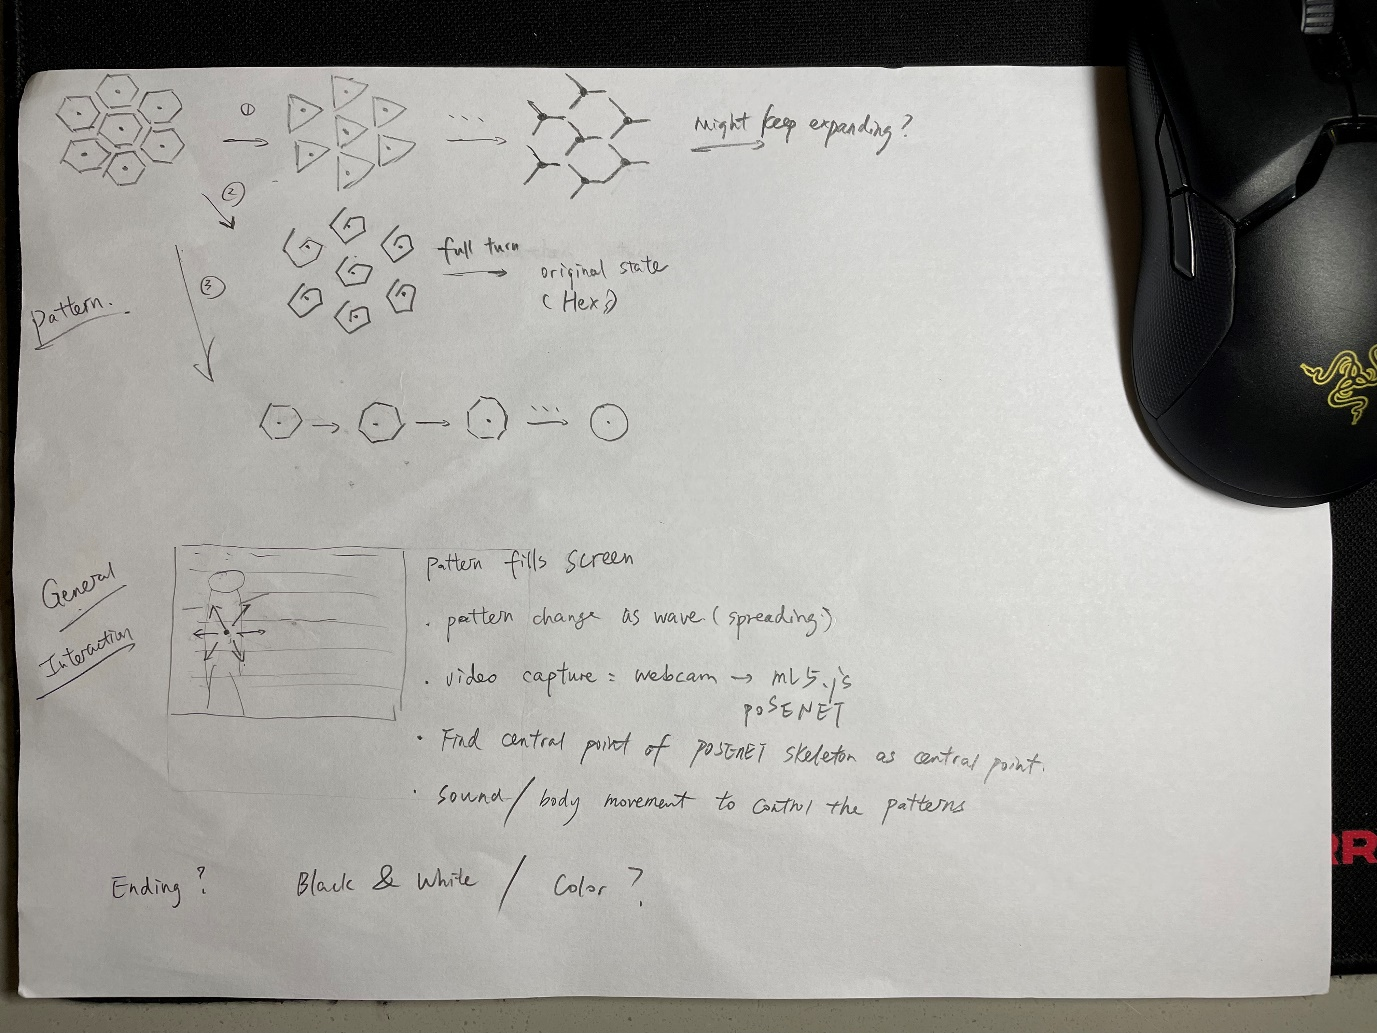 ①
Might keep expanding?
②
full turn
original state
(Hex)
③
Pattern.
General
Interaction
Pattern fills screen
. pattern change as wave (spreading)
. video capture : webcam → ml5.js
POSENET
. Find central point of POSENET skeleton as central point.
. sound/body movement to control the patterns
Ending? Black & White / Color?